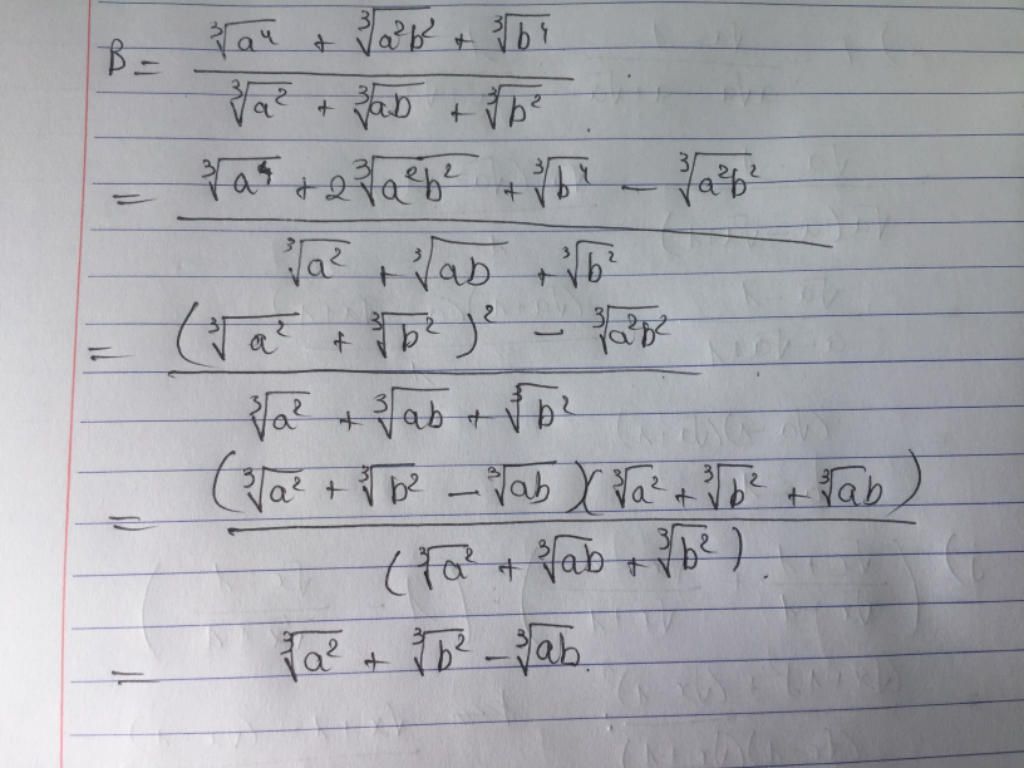 B = \frac{\sqrt[3]{a^4} + \sqrt[3]{a^2b^2} + \sqrt[3]{b^4}}{\sqrt[3]{a^2} + \sqrt[3]{ab} + \sqrt[3]{b^2}}
= \frac{\sqrt[3]{a^4} + 2\sqrt[3]{a^2b^2} + \sqrt[3]{b^4} - \sqrt[3]{a^2b^2}}{\sqrt[3]{a^2} + \sqrt[3]{ab} + \sqrt[3]{b^2}}
= \frac{(\sqrt[3]{a^2} + \sqrt[3]{b^2})^2 - \sqrt[3]{a^2b^2}}{\sqrt[3]{a^2} + \sqrt[3]{ab} + \sqrt[3]{b^2}}
= \frac{(\sqrt[3]{a^2} + \sqrt[3]{b^2} - \sqrt[3]{ab})(\sqrt[3]{a^2} + \sqrt[3]{b^2} + \sqrt[3]{ab})}{(\sqrt[3]{a^2} + \sqrt[3]{ab} + \sqrt[3]{b^2})}.
= \sqrt[3]{a^2} + \sqrt[3]{b^2} - \sqrt[3]{ab}.